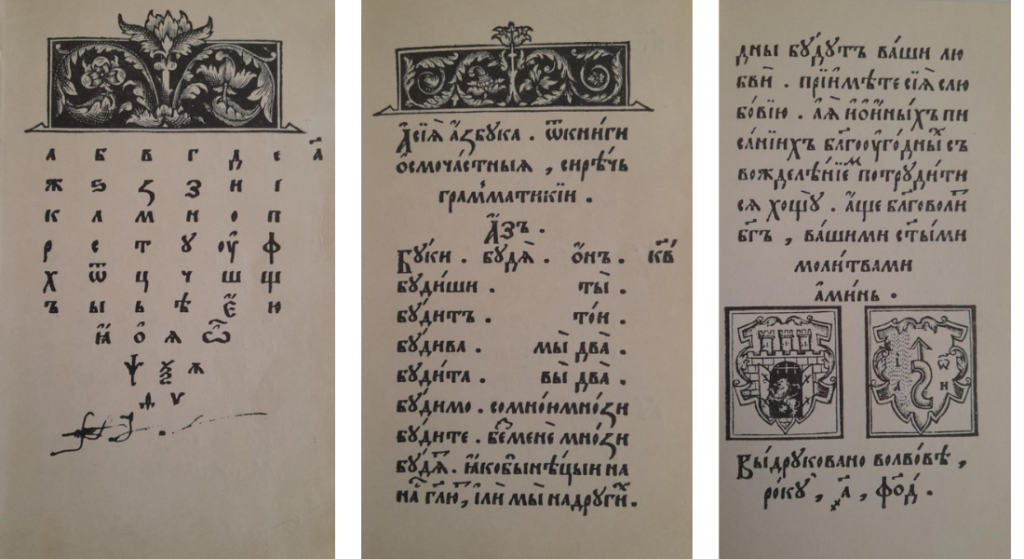 а б в г д е а҃
ж ѕ ꙁ з и і
к л м н о п
р с т ꙋ оу҆ ф
х ѿ ц ч ш щ
ъ ы ь ѣ є҆ ю
ꙗ҆ ѻ҆ ѧ ѽ
ѱ ѯ ѫ
ѵ
А҆сїѧ̀ а҆́збꙋка . ѿкни́ги
ѻ҆смоча́стныꙗ , си́рѣчь
грамма́тикїи .
А҆́зъ .
Бꙋ́ки . бꙋ́дꙋ̀ . ѻ҆́нъ .
бꙋ́диши . ты̀ .
бꙋ́дитъ . то́и .
бꙋ́дива . мы̀ два̀ .
бꙋ́дита . вы̀ два̀ .
бꙋ́димо . сомно́имно́ѕи
бꙋ́дите . беⷥ менѐ мно́ѕи
ꙗ҆кобынѣ́цыи на
на̀ гл҃ю , и҆лѝ мы̀ надрꙋгїⷯ .
дны бꙋ́дꙋтъ ва́ши лю
бвѝ . прїи҆мѣ́те сїѧ̀ слю
бо́вїю . а҆ꙗ҆̀ и҆ѻ҆и҆ны́хъ пи
са́нїихъ бл҃гооуго́дныⷯ съ
вожделѣ́нїеⷨ потрꙋди́ти
сѧ хощꙋ̀ . а҆́ще бл҃говоли́тъ
бг҃ъ , ва́шими ст҃ы́ми
моли́твами
а҆ми́нь .
Вы́дрꙋковано волво́вѣ ,
ро́кꙋ , ҂а҃ , фо҃д .